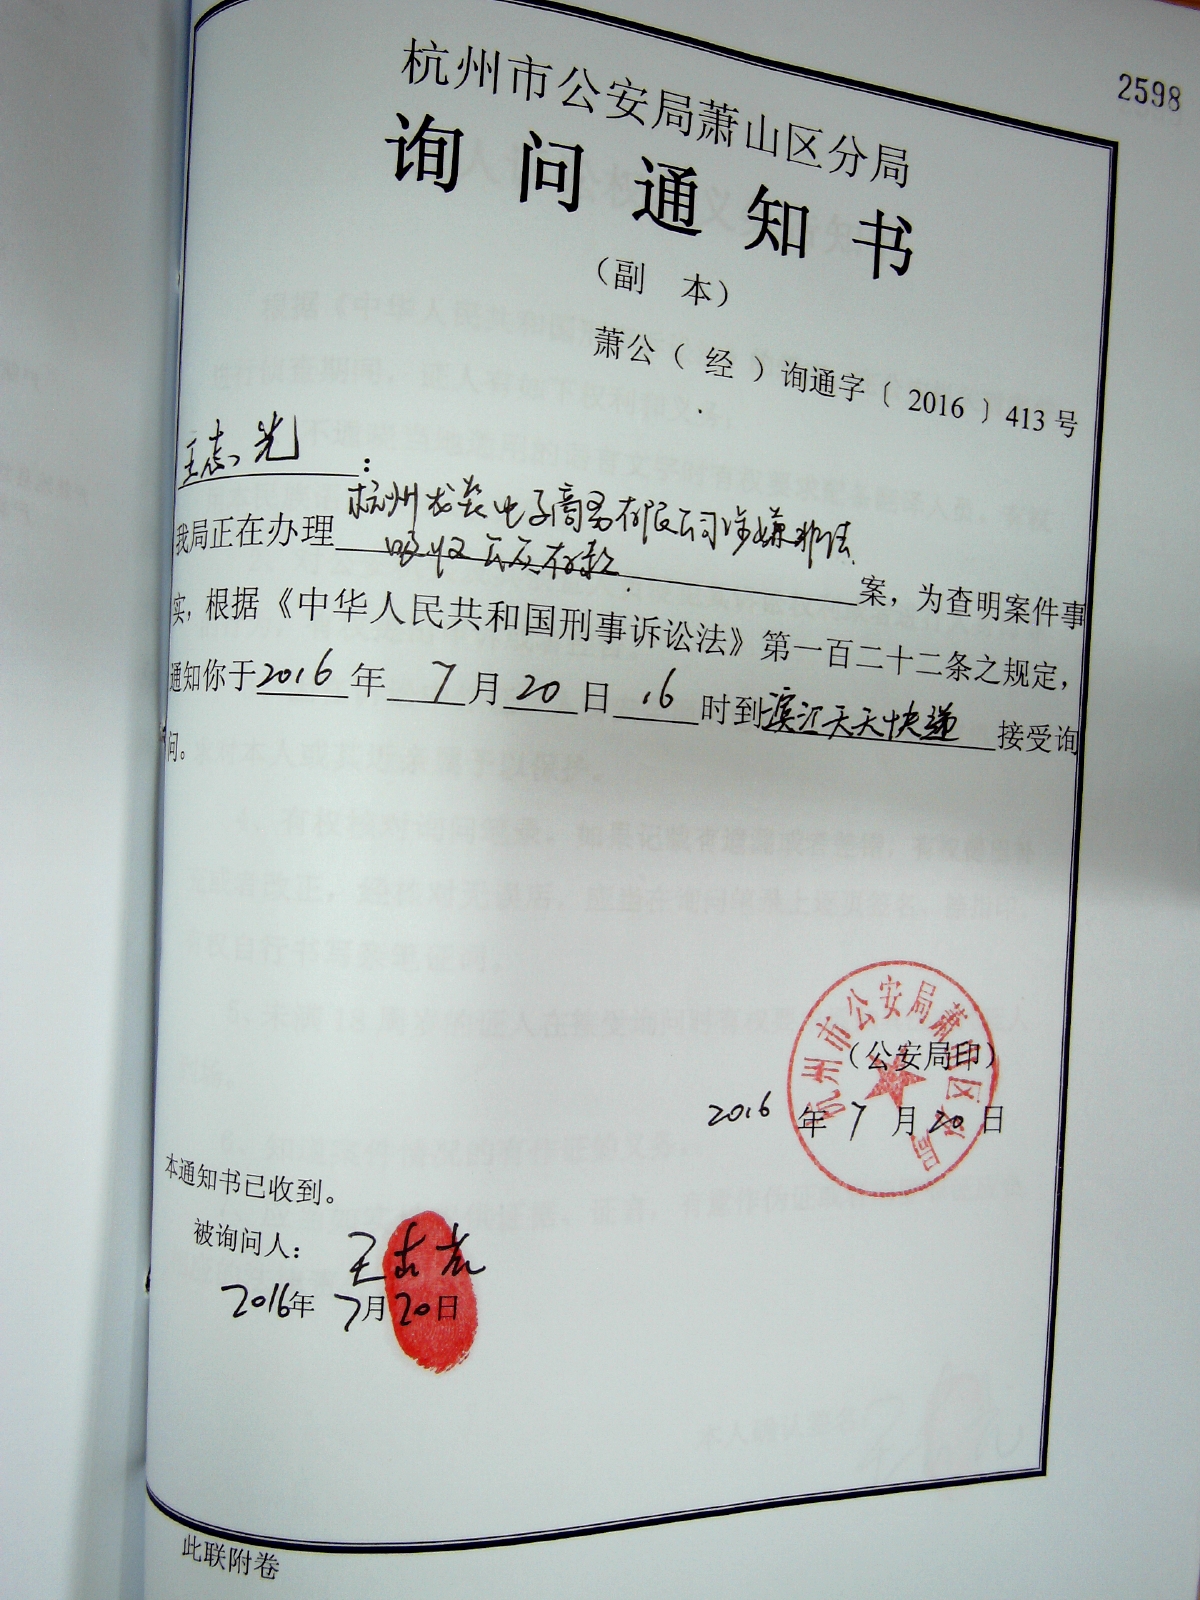 2598
杭州市公安局萧山区分局
询问通知书
（副 本）
萧公（经）询通字〔2016〕413号
王志光：
杭州龙炎电子商务有限公司涉嫌非法
我局正在办理吸收公众存款案，为查明案件事
实，根据《中华人民共和国刑事诉讼法》第一百二十二条之规定，
通知你于2016年7月20日16时到滨江天天快递接受询
问。
杭州市公安局萧山区分局
（公安局印）
2016年7月20日
本通知书已收到。
被询问人：王志光
2016年7月20日
此联附卷